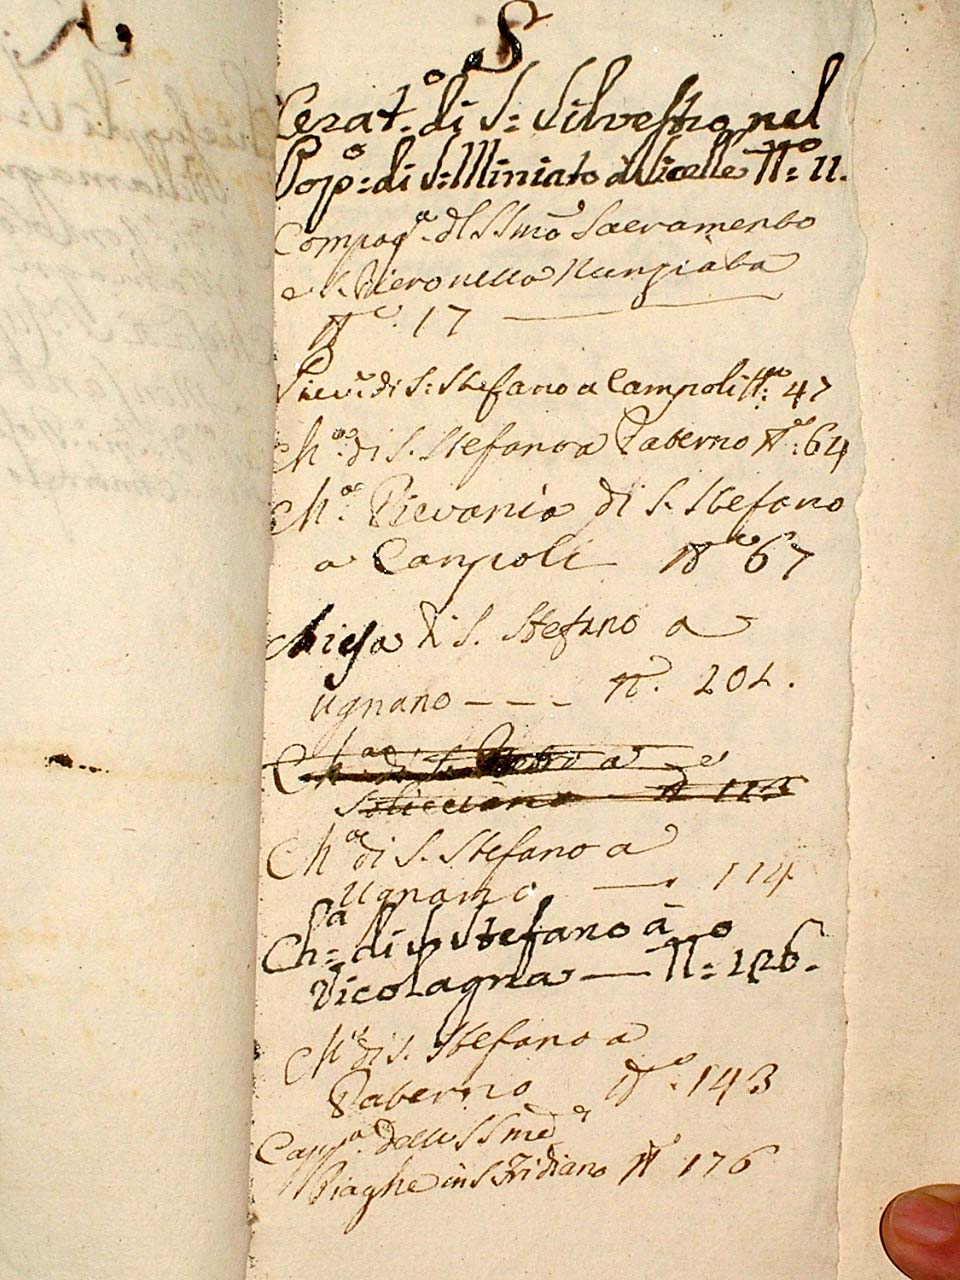 S
Cerat.o di S: Silvestro nel
Pop.o di S: Miniato a Sicelle N.o 11.
Compag.a dl SSmo Sacramento
e S. Pieronella Nunziata
N.o 17
Piev.e di S: Stefano a Campoli N.o 47
Ch.a di S. Stefano a Paterno N.o 64
Ch.a Pievania di S. Stefano
a Canpoli N.o 67
chiesa di S. Stefano a
Ugnano - - - N.o 202.
Ch.a di S. Pietro a
Solicciano N.o 113
Ch.a di S. Stefano a
Ugnano — 114
Ch.a di S. Stefano à
Vicolagna — N.o 126.
Ch.a di S. Stefano a
Paterno N.o 143
Capp.a delle SSme
Piaghe in S Fridiano N.o 176